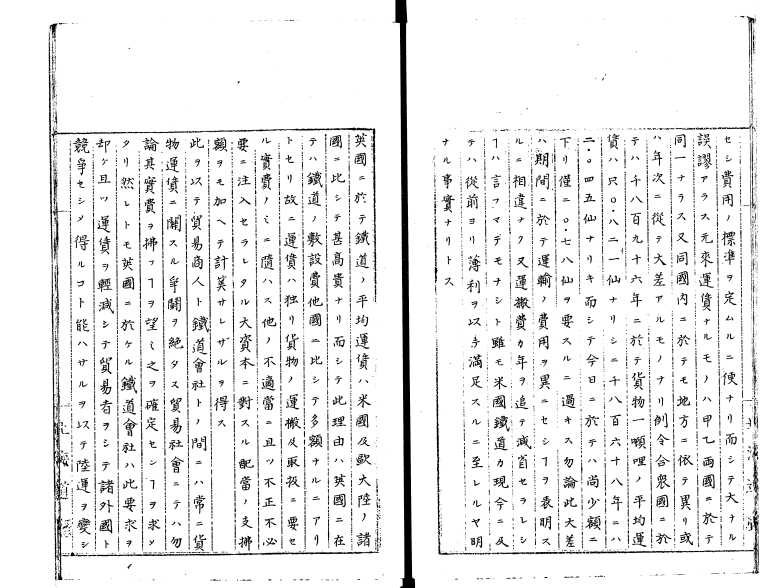 セシ費用ノ標準ヲ定ムルニ便ナリ而シテ大ナル
誤謬アラス元來運賃ナルモノハ甲乙兩國ニ於テ
同一ナラス又同國内ニ於テモ地方ニ依テ異リ或
ハ年次ニ從テ大差アルモノナリ例令合衆國ニ於
テハ千八百九十六年ニ於テ貨物一噸哩ノ平均運
賃ハ只〇・八二一仙ナリシニ千八百六十八年ニハ
二・〇四五仙ナリキ而シテ今日ニ於テハ尚少額ニ
下リ僅ニ〇・七八仙ヲ要スルニ過キス勿論此大差
ハ期間ニ於テ運輸ノ費用ヲ異ニセシヿヲ表明ス
ルニ相違ナク又運搬費カ年ヲ追テ減省セラレシ
ヿハ言フマデモナシト雖モ米國鐵道カ現今ニ及
テハ從前ヨリ薄利ヲ以テ満足スルニ至レルヤ明
ナル事實ナリトス
英國ニ於テ鐵道ノ平均運賃ハ米國及歐大陸ノ諸
國ニ比シテ甚高貴ナリ而シテ此理由ハ英國ニ在
テハ鐵道ノ敷設費他國ニ比シテ多額ナルニアリ
トセリ故ニ運賃ハ独リ貨物ノ運搬及取扱ニ要セ
ル實費ノミニ隨ハス他ノ不適當ニ且ツ不正不必
要ニ注入セラレタル大資本ニ對スル配當ノ支拂
額ヲモ加ヘテ計算サレザルヲ得ス
此ヲ以テ貿易商人ト鐵道會社トノ間ニハ常ニ貨
物運賃ニ關スル爭鬪ヲ絶タス貿易社會ニテハ勿
論其實費ヲ拂フヿヲ望ミ之ヲ確定センヿヲ求メ
タリ然レトモ英國ニ於ケル鐵道會社ハ此要求ヲ
却ケ且ツ運賃ヲ輕減シテ貿易者ヲシテ諸外國ト
競爭セシメ得ルコト能ハサルヲ以テ陸運ヲ變シ